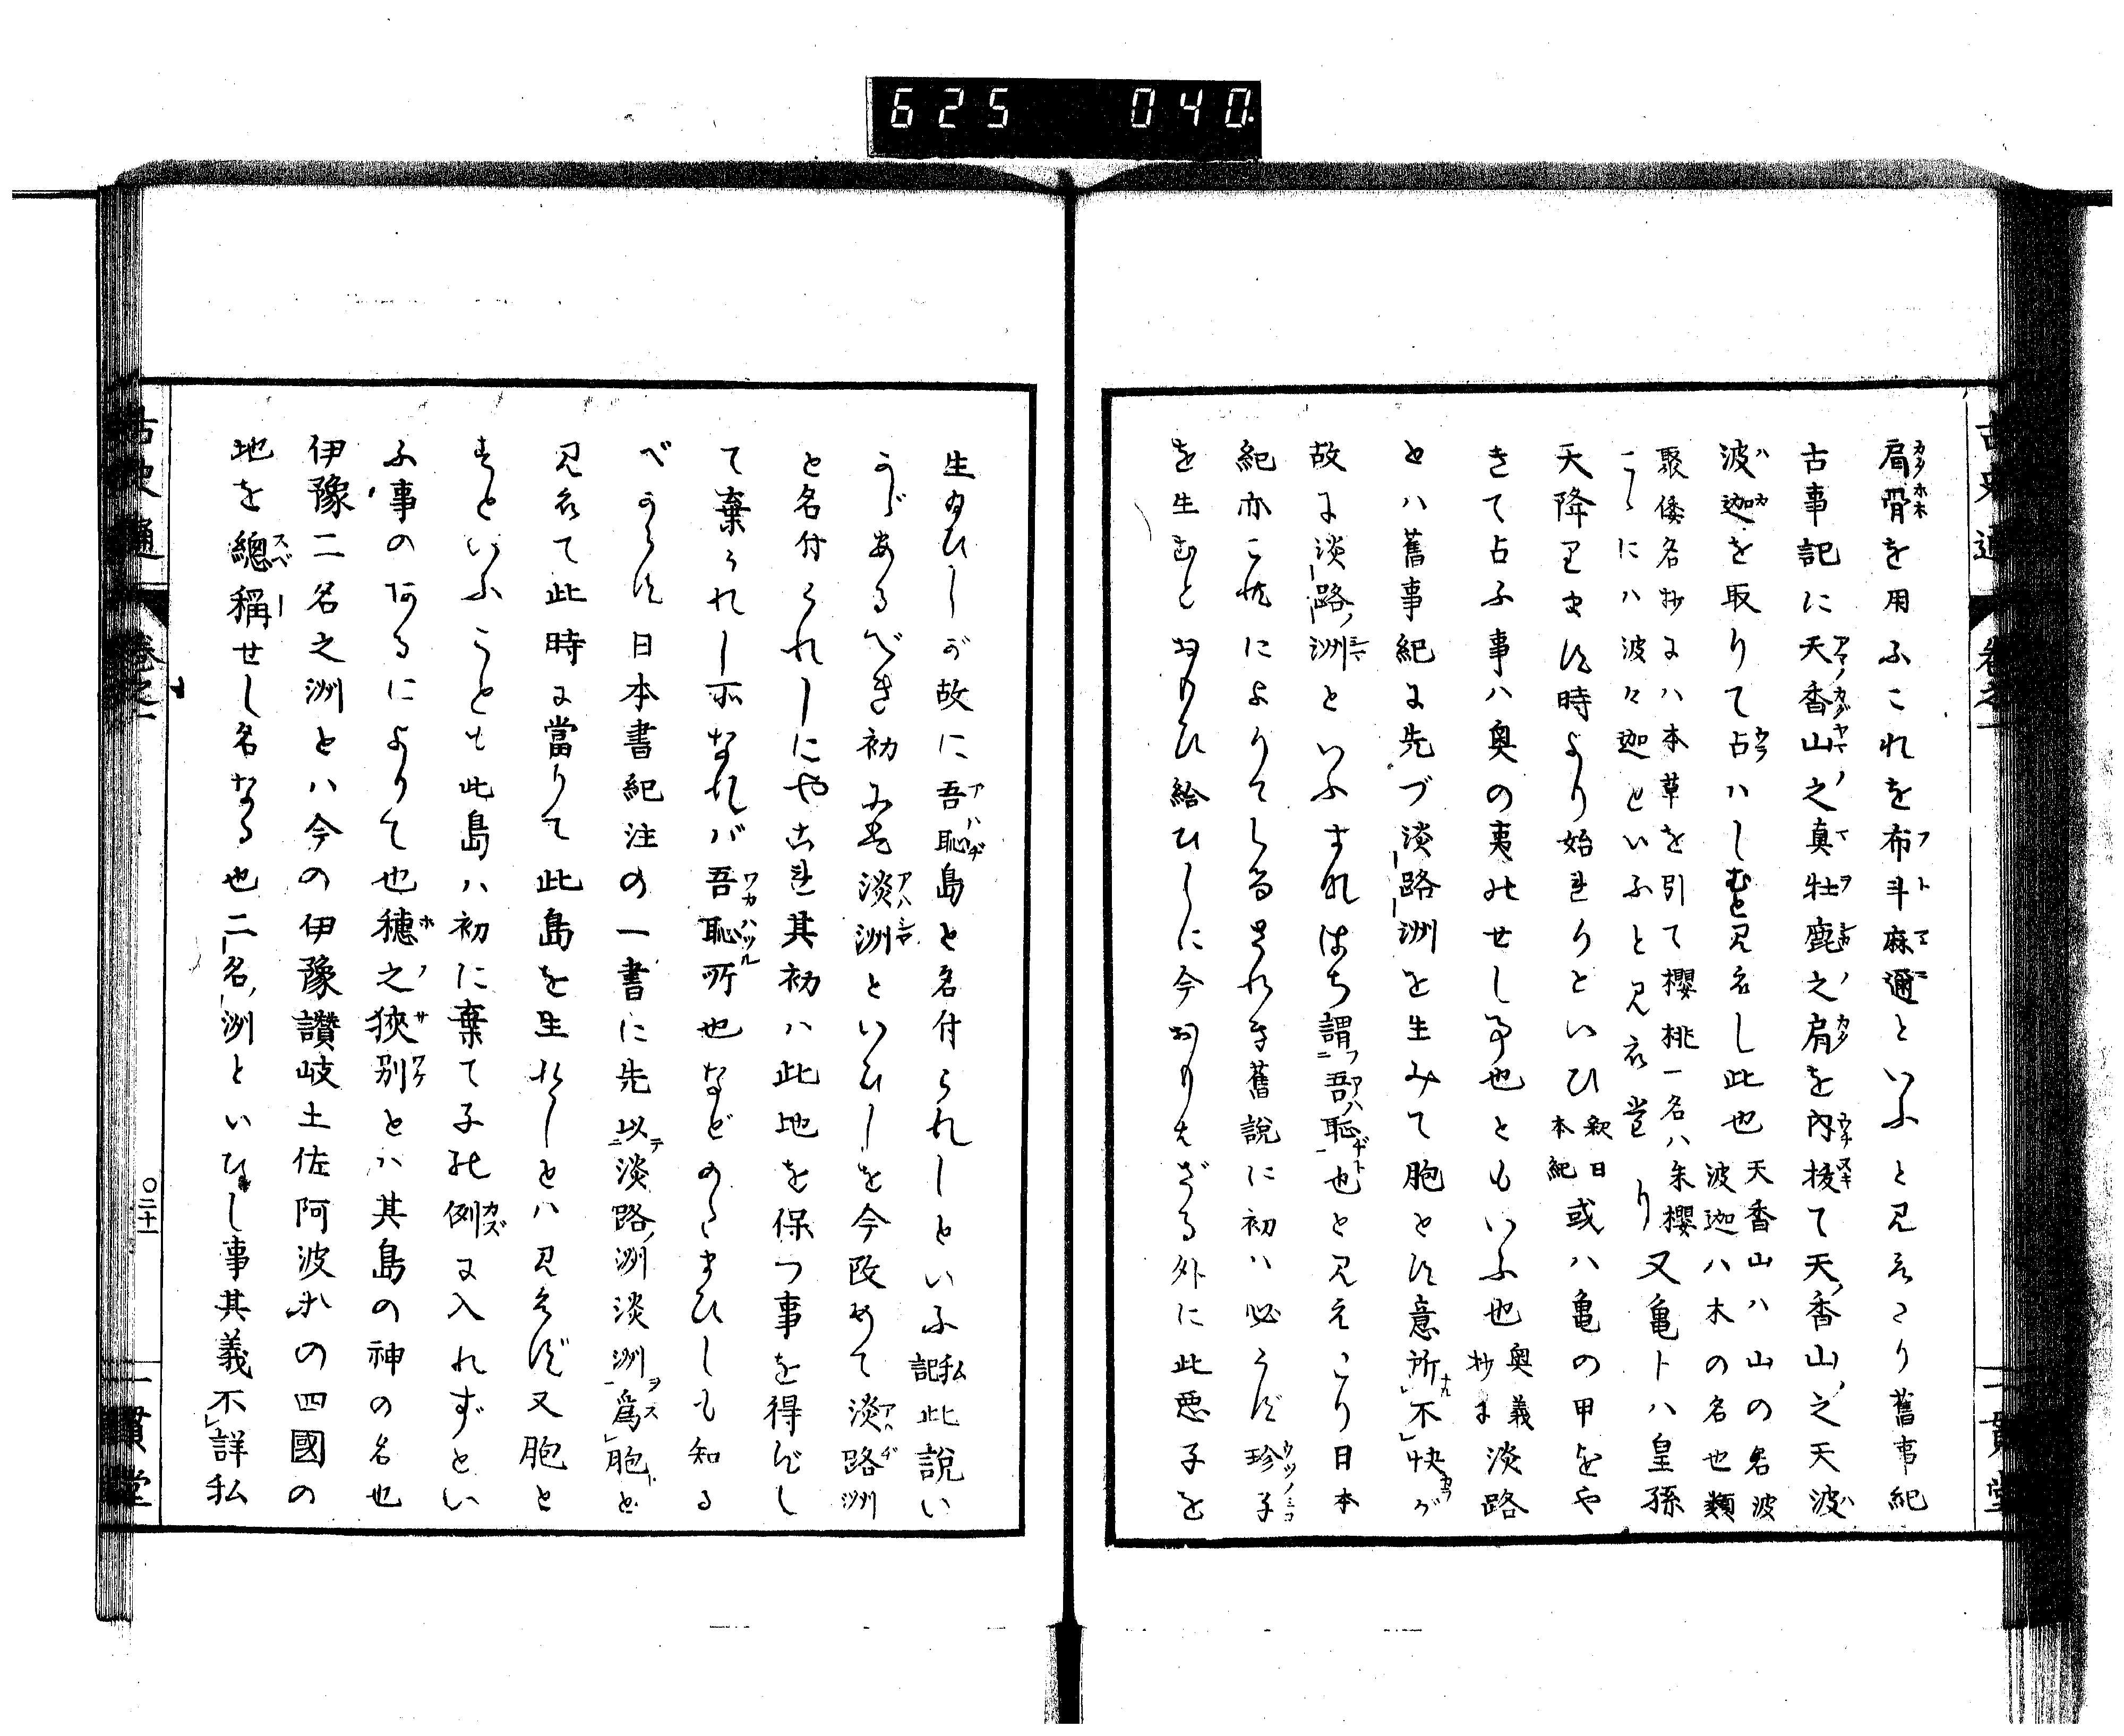 625 040
古史通 卷之一 一貫堂
肩骨を用ふこれを布斗麻邇といふと見えたり舊事紀
古事記に天香山之真牡鹿之肩を內拔て天香山之天波
波迦を取りて占ハしむと見えし此也
天香山ハ山の名波
波迦ハ木の名也類
聚倭名抄にハ本草を引て櫻桃一名ハ朱櫻
こゝにハ波々迦といふと見えたり
又亀卜ハ皇孫
天降ります時より始れりといひ
釈日
本紀
或ハ亀の甲をや
きて占ふ事ハ奥の夷のせし事也ともいふ也
奥義
抄
淡路
とハ舊事紀に先づ淡路洲を生みて胞とす意所不快が
故に淡路洲といふすなはち謂吾恥也と見えたり日本
紀亦これによりてしるされき舊說に初ハ必うず珍子
を生むとおもひ給ひしに今おもはざる外に此悪子を
生給ひしが故に吾恥島と名付られしといふ
私
記
此說い
うゞあるべき初にハ淡洲といひしを今改めて淡路洲
と名付られしにや古と其初ハ此地を保つ事を得ずし
て棄られし所なれバ吾恥所也などのたまひしも知る
べからず日本書紀注の一書に先以淡路洲淡洲爲胞と
見えて此時に當りて此島を生れしとハ見えず又胞と
すといふことも此島ハ初に棄て子の例に入れずとい
ふ事のあるによりて也穗之狹别とハ其島の神の名也
伊豫二名之洲とハ今の伊豫讚岐土佐阿波の四國の
地を總稱せし名なる也二名洲といひし事其義不詳私
古史通 卷之一 〇二十一 一貫堂